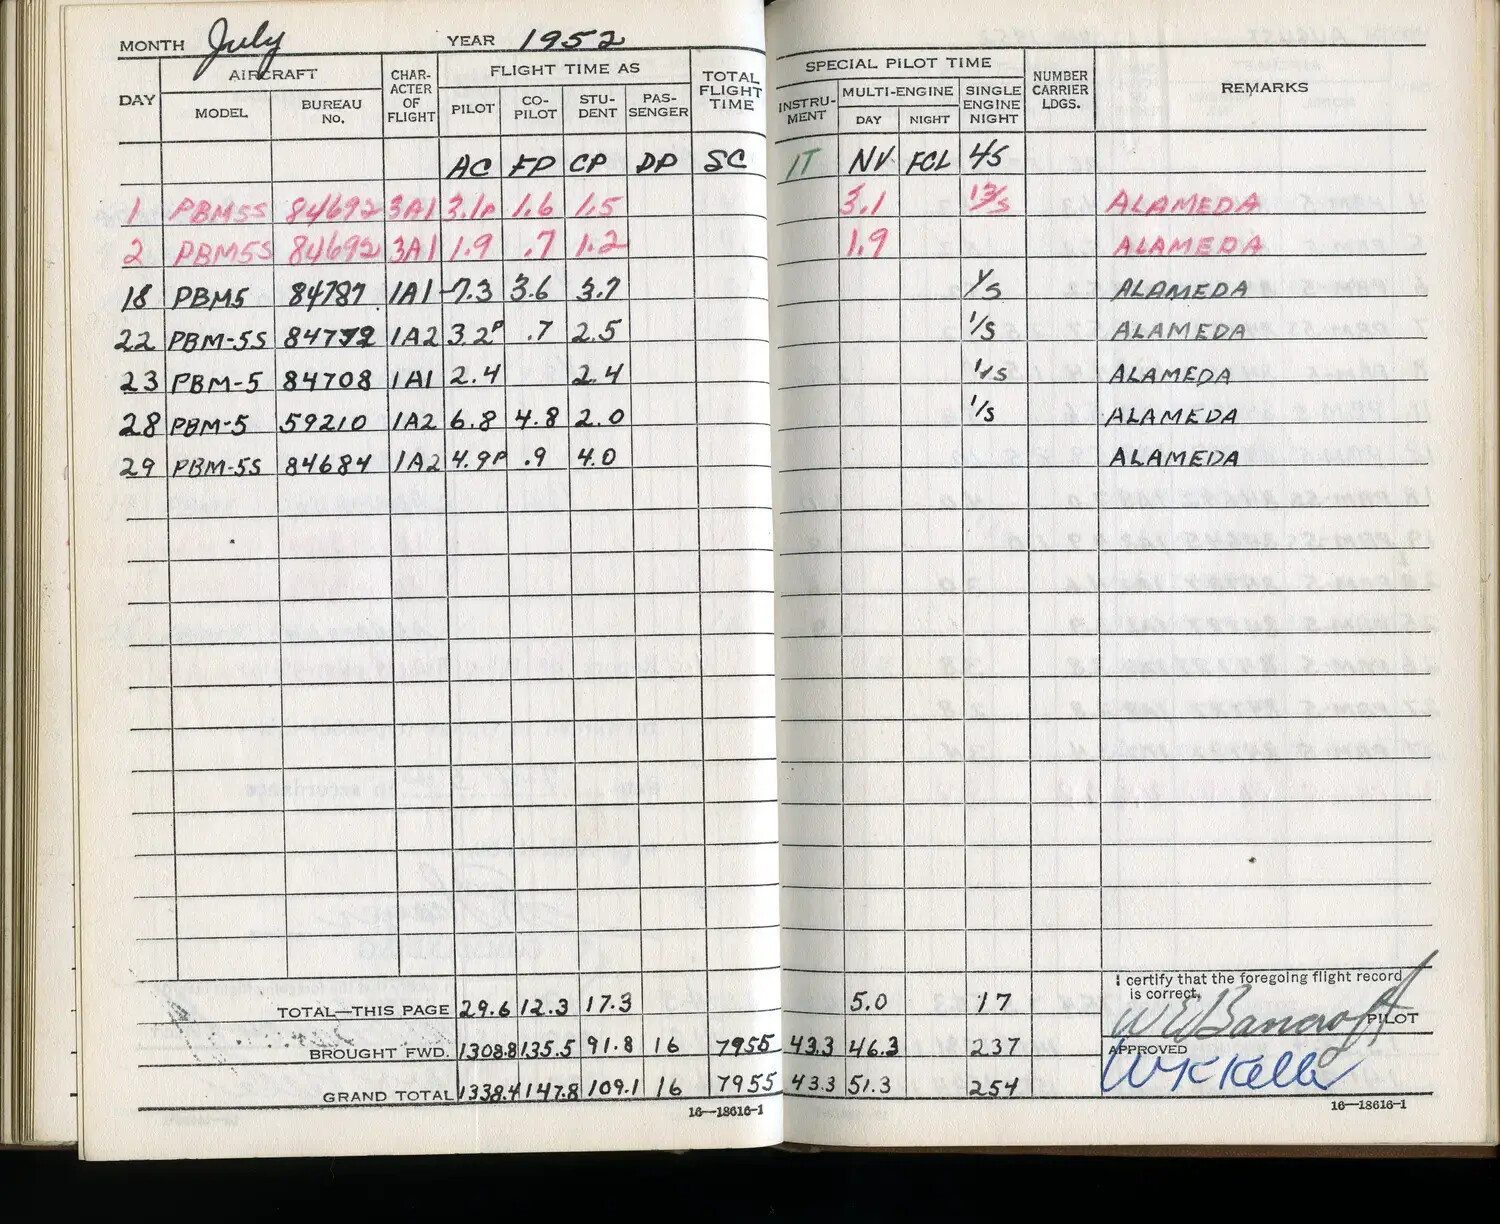 MONTH July YEAR 1952
DAY AIRCRAFT CHAR-ACTER OF FLIGHT FLIGHT TIME AS TOTAL FLIGHT TIME SPECIAL PILOT TIME NUMBER CARRIER LDGS. REMARKS
MODEL BUREAU No. PILOT CO-PILOT STU-DENT PAS-SENGER INSTRU-MENT MULTI-ENGINE SINGLE ENGINE NIGHT
DAY NIGHT
AC FP CP DP SC IT NV FCL 4S
1 PBM5S 84692 3A1 3.1P 1.6 1.5 3.1 13/S ALAMEDA
2 PBM5S 84692 3A1 1.9 .7 1.2 1.9 ALAMEDA
18 PBM5 84787 1A1 7.3 3.6 3.7 1/S ALAMEDA
22 PBM-5S 84772 1A2 3.2P .7 2.5 1/S ALAMEDA
23 PBM-5 84708 1A1 2.4 2.4 1/S ALAMEDA
28 PBM-5 59210 1A2 6.8 4.8 2.0 1/S ALAMEDA
29 PBM-5S 84684 1A2 4.9P .9 4.0 ALAMEDA
TOTAL—THIS PAGE 29.6 12.3 17.3 5.0 17
BROUGHT FWD. 1308.8 135.5 91.8 16 7955 43.3 46.3 237
GRAND TOTAL 1338.4 147.8 109.1 16 7955 43.3 51.3 254
16—18616-1
I certify that the foregoing flight record is correct,
W E Bancroft PILOT
APPROVED
W K Kelle
16—18616-1